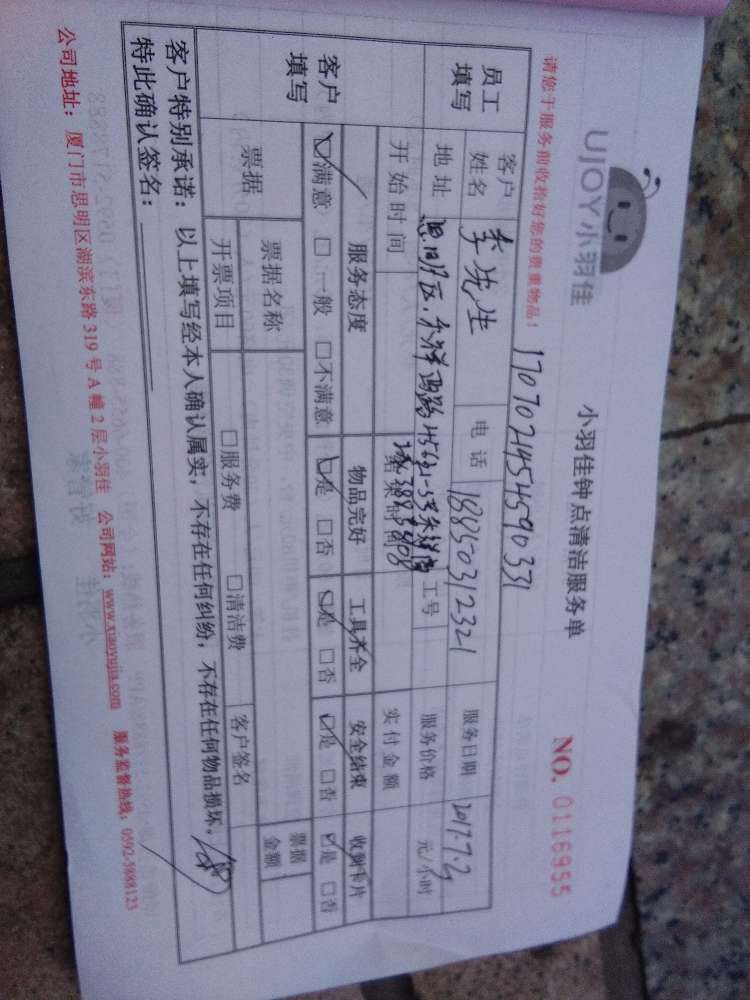 UJOY小羽佳
小羽佳钟点清洁服务单
NO. 0116955
请您于服务前收拾好您的贵重物品！
1707021454590331
员工填写
客户姓名 李先生 电话 18850312321 服务日期 2017.7.2
地址 思明区 工号 服务价格 元/小时
开始时间 结束时间 实付金额
客户填写
服务态度 物品完好 工具齐全 安全结束 收到卡片
☑满意 □一般 □不满意 ☑是 □否 ☑是 □否 ☑是 □否 ☑是 □否
票据 票据名称 客户签名 票据金额
开票项目 □服务费 □清洁费
客户特别承诺：以上填写经本人确认属实，不存在任何纠纷，不存在任何物品损坏。
特此确认签名：
公司地址：厦门市思明区湖滨东路 319 号 A 幢 2 层小羽佳 公司网站：www.xiaoyujia.com 服务监督热线：0592-5888123